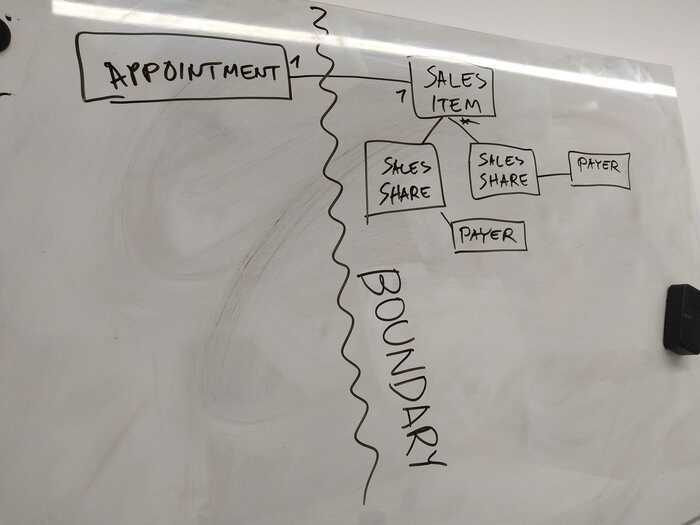 APPOINTMENT
1
1
SALES
ITEM
*
SALES
SHARE
SALES
SHARE
PAYER
PAYER
BOUNDARY